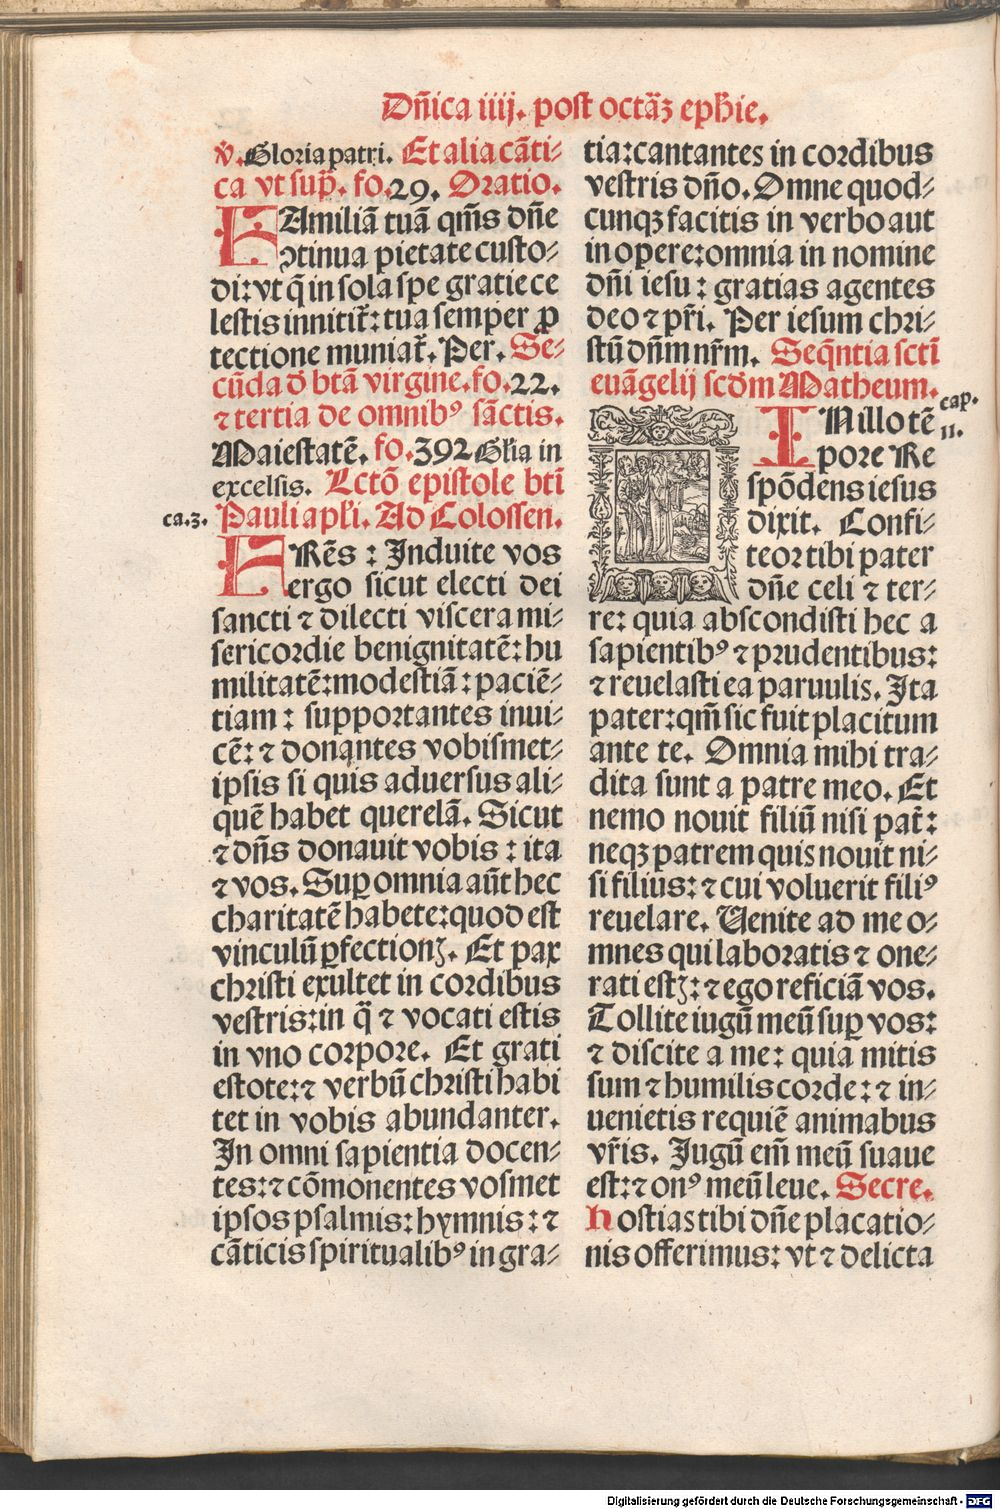 Dñica iiij. post octãꝫ epħie.
v̆. Gloria patri. Et alia cãti⸗
ca vt supͣ. fo. 29. Oratio.
FAmiliã tuã qm̃s dñe
ↄtinua pietate custo⸗
di: vt q̃ in sola spe gratie ce
lestis innitit᷑: tua semper ꝓ
tectione muniat᷑. Per. Se⸗
cũda ð btã virgine. fo. 22.
⁊ tertia de omnibꝰ sãctis.
Maiestatẽ. fo. 392 Gľia in
excelsis. Lctõ epistole bti
Pauli apľi. Ad Colossen.
ca. 3.
FRẽs: Induite vos
ergo sicut electi dei
sancti ⁊ dilecti viscera mi⸗
sericordie benignitatẽ: hu
militatẽ: modestiã: paciẽ⸗
tiam: supportantes inui⸗
cẽ: ⁊ donantes vobismet⸗
ipsis si quis aduersus ali⸗
quẽ habet querelã. Sicut
⁊ dñs donauit vobis: ita
⁊ vos. Suꝑ omnia aũt hec
charitatẽ habete: quod est
vinculũ ꝑfectionꝫ. Et pax
christi exultet in cordibus
vestris: in q̃ ⁊ vocati estis
in vno corpore. Et grati
estote: ⁊ verbũ christi habi
tet in vobis abundanter.
In omni sapientia docen⸗
tes: ⁊ cõmonentes vosmet
ipsos psalmis: hymnis: ⁊
cãticis spiritualibꝰ in gra⸗
tia: cantantes in cordibus
vestris dño. Omne quod⸗
cunqꝫ facitis in verbo aut
in opere: omnia in nomine
dñi iesu: gratias agentes
deo ⁊ pr̃i. Per iesum chri⸗
stũ dñm nr̃m. Seq̃ntia scti
euãgelij scðm Matheum.
cap.
11.
IN illo tẽ
pore Re
spõdens iesus
dixit. Confi⸗
teor tibi pater
dñe celi ⁊ ter⸗
re: quia abscondisti hec a
sapientibꝰ ⁊ prudentibus:
⁊ reuelasti ea paruulis. Ita
pater: qm̃ sic fuit placitum
ante te. Omnia mihi tra⸗
dita sunt a patre meo. Et
nemo nouit filiũ nisi pat᷑:
neqꝫ patrem quis nouit ni⸗
si filius: ⁊ cui voluerit filiꝰ
reuelare. Uenite ad me o⸗
mnes qui laboratis ⁊ one⸗
rati estꝫ: ⁊ ego reficiã vos.
Tollite iugũ meũ suꝑ vos:
⁊ discite a me: quia mitis
sum ⁊ humilis corde: ⁊ in⸗
uenietis requiẽ animabus
vr̃is. Jugũ em̃ meũ suaue
est: ⁊ onꝰ meũ leue. Secre.
Hostias tibi dñe placatio⸗
nis offerimus: vt ⁊ delicta
Digitalisierung gefördert durch die Deutsche Forschungsgemeinschaft - DFG